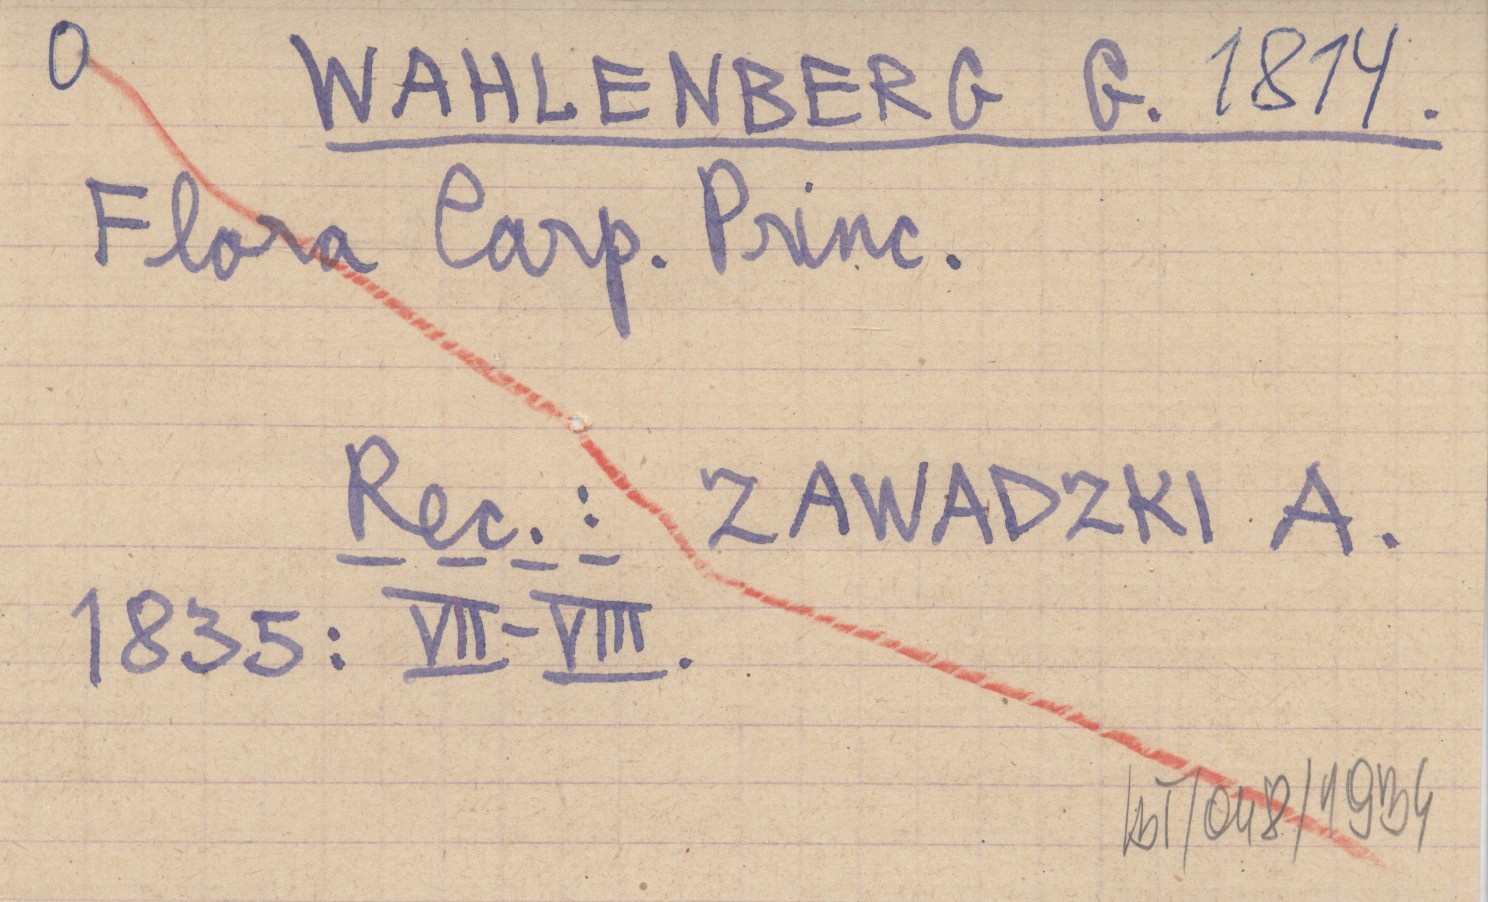 0 WAHLENBERG G. 1814.
Flora Carp. Princ.
Rec.: ZAWADZKI A.
1835: VII-VIII.
/048/1934